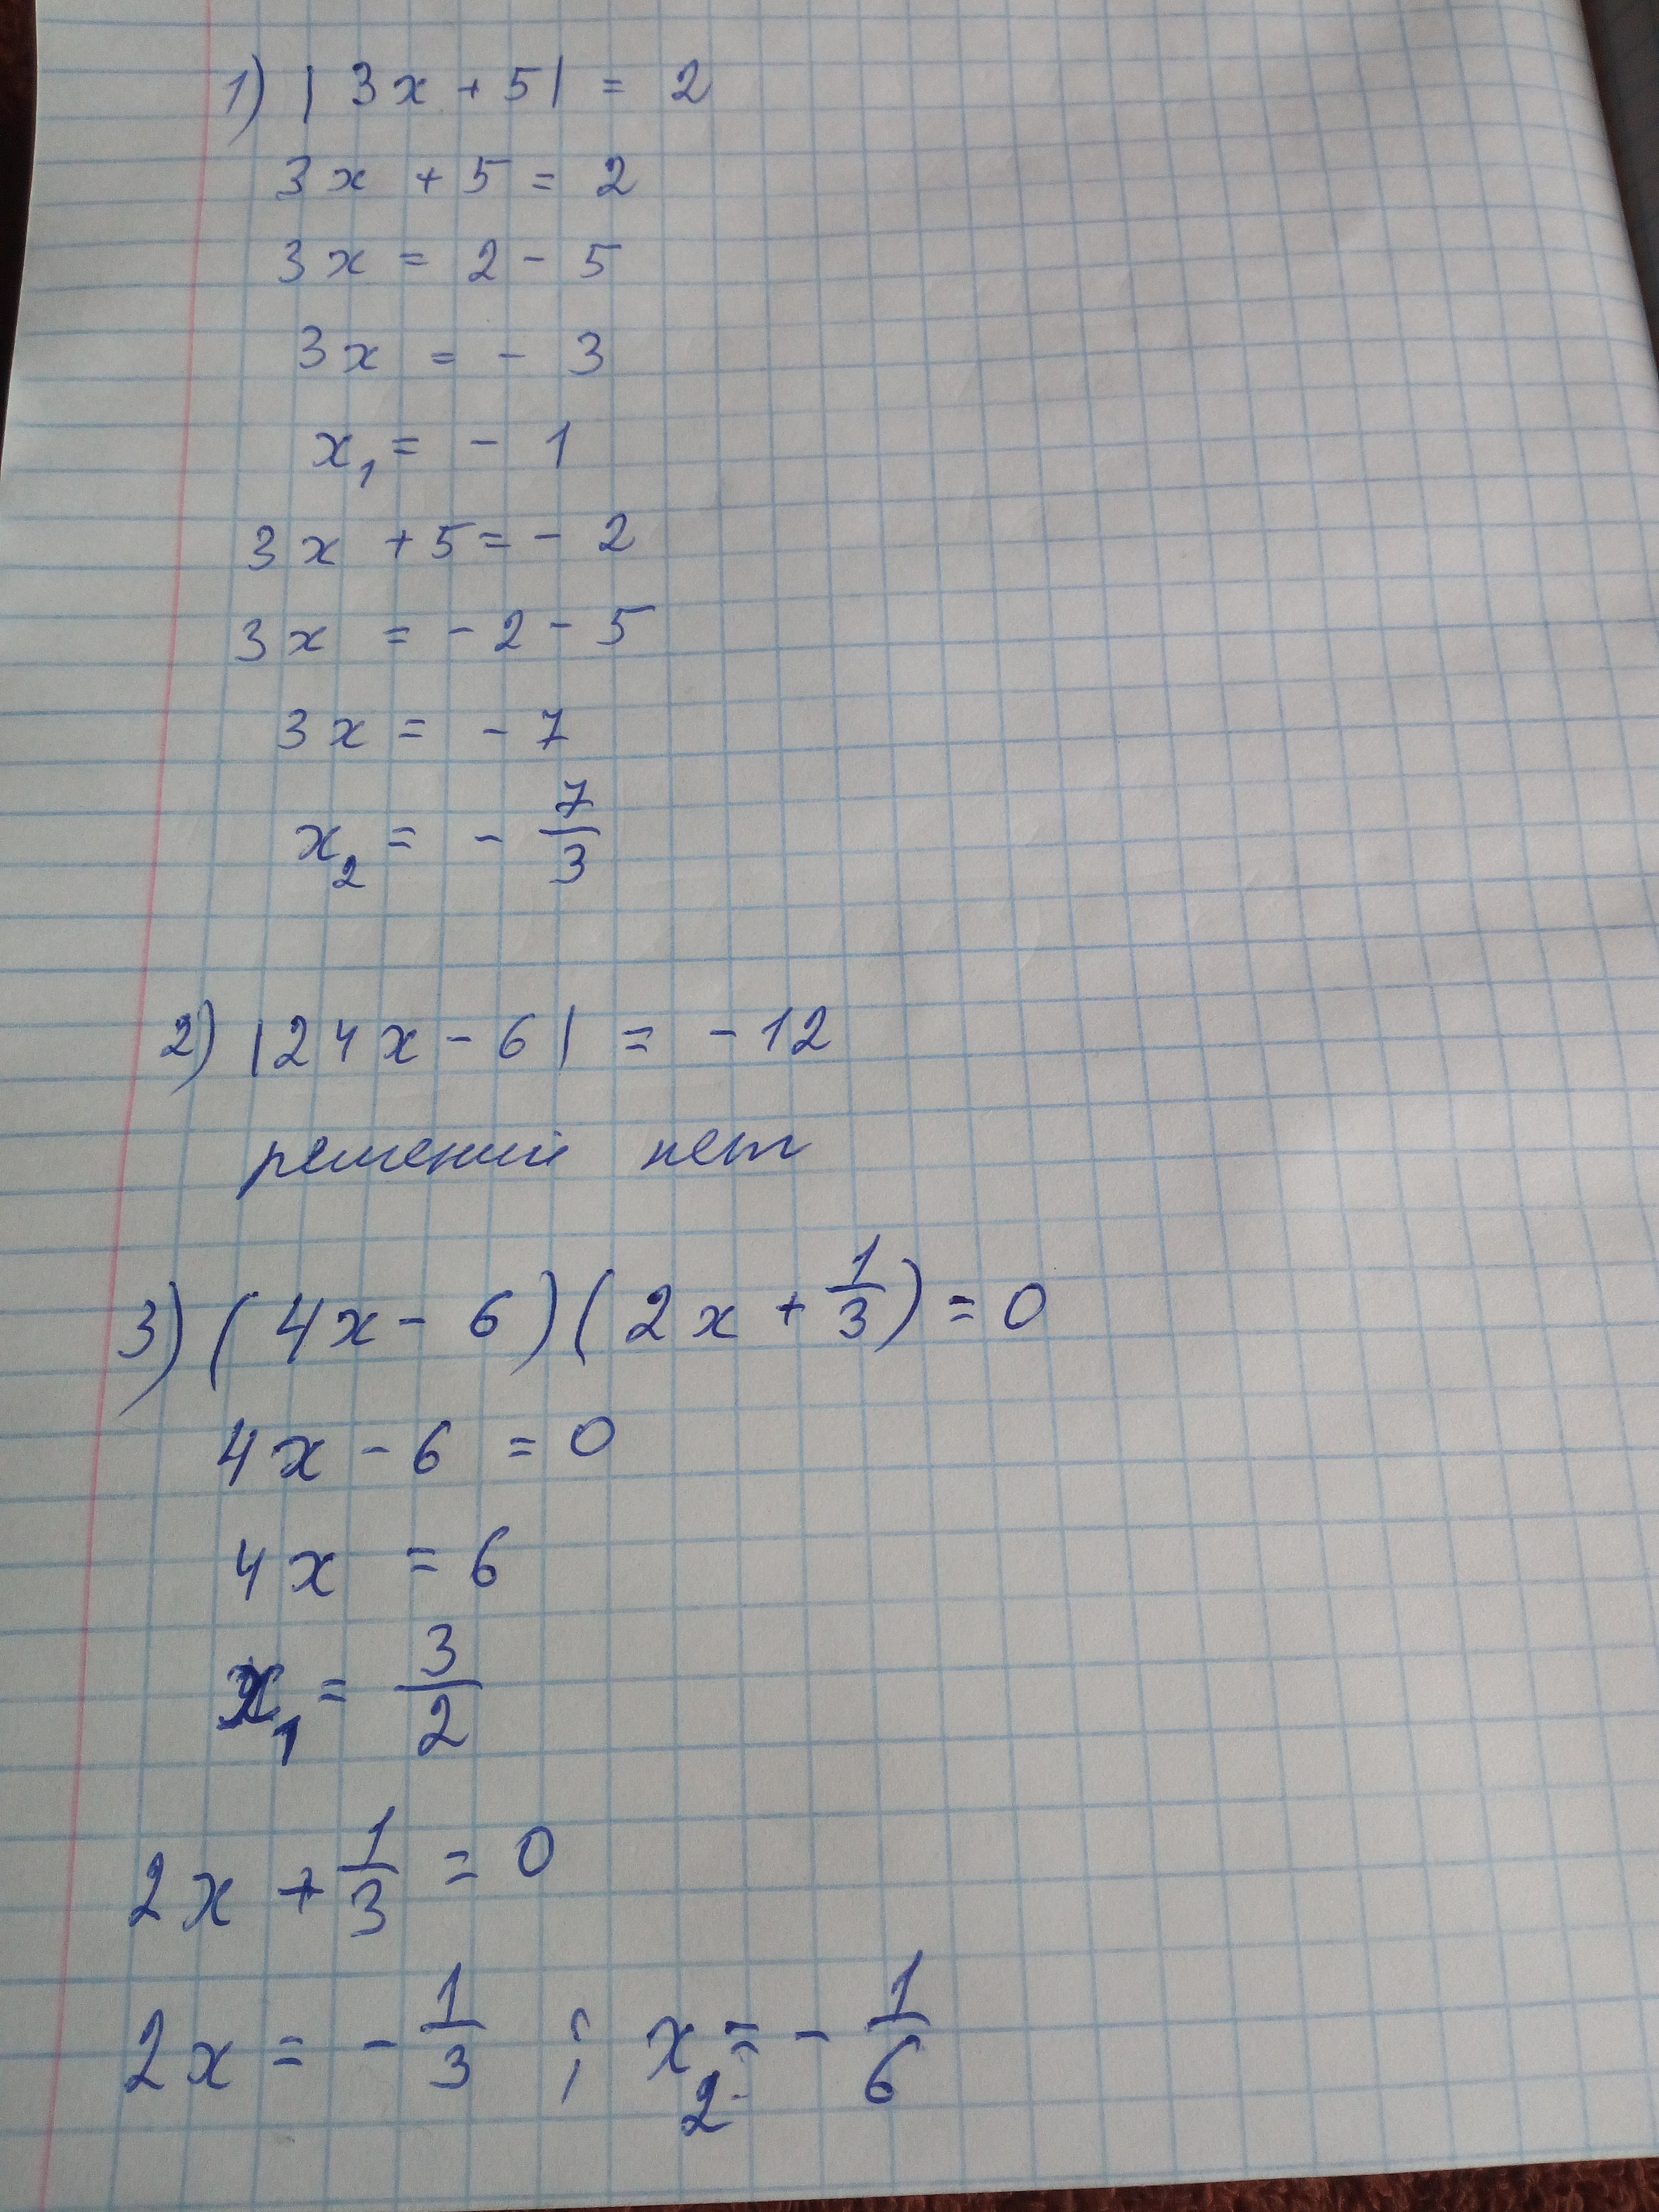 1) |3x + 5| = 2
3x + 5 = 2
3x = 2 - 5
3x = - 3
x₁ = - 1
3x + 5 = - 2
3x = - 2 - 5
3x = - 7
x₂ = - 7/3
2) |24x - 6| = - 12
решений нет
3) (4x - 6)(2x + 1/3) = 0
4x - 6 = 0
4x = 6
x₁ = 3/2
2x + 1/3 = 0
2x = - 1/3 ; x₂ = - 1/6